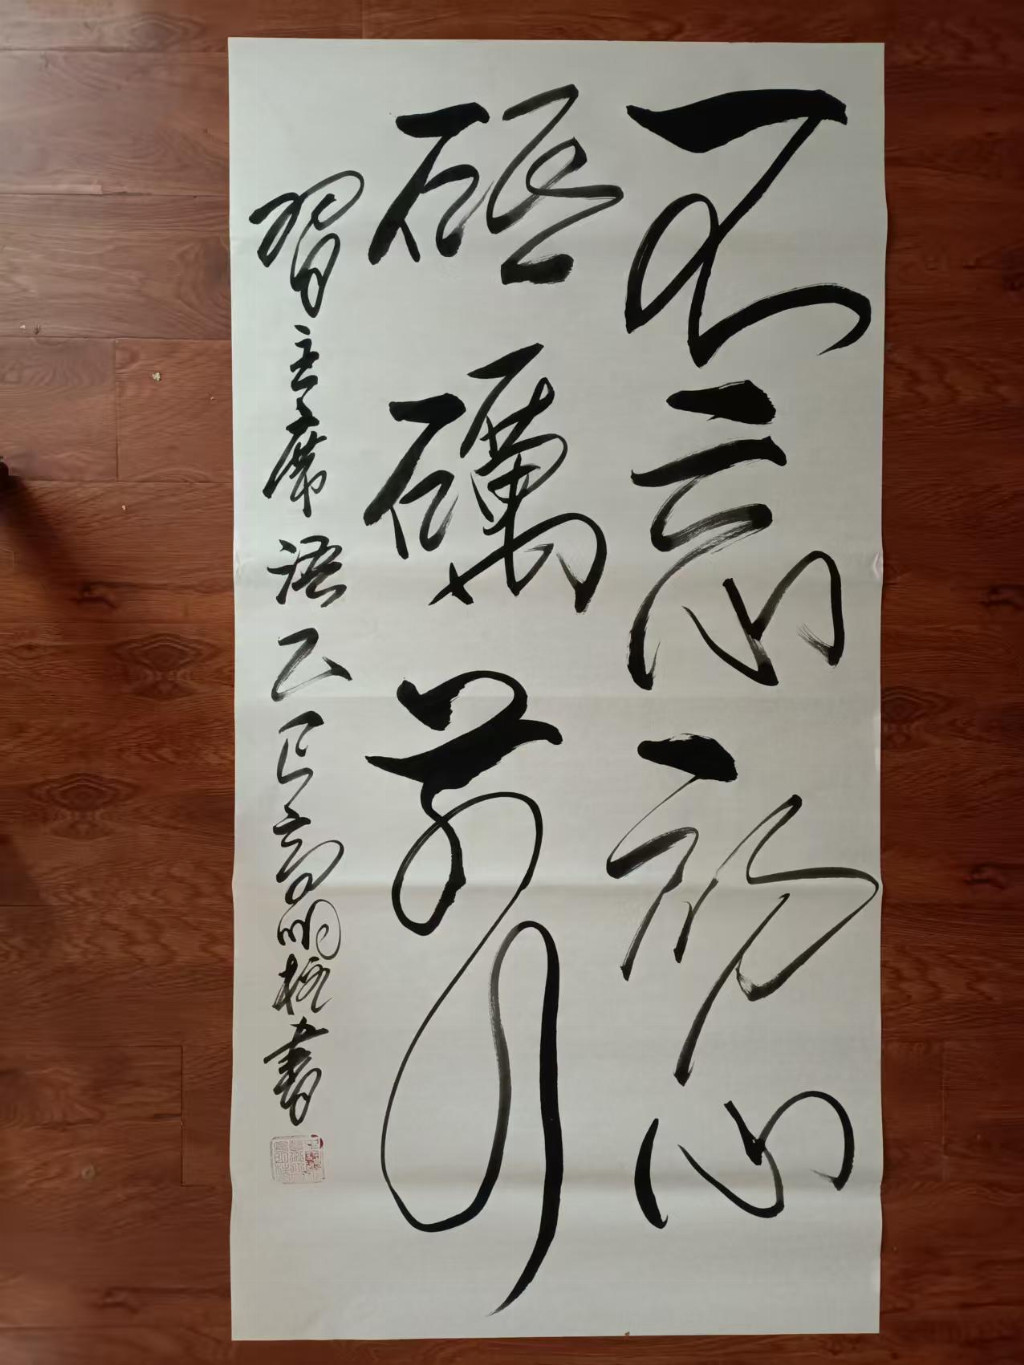 不忘初心
砥礪前行
習主席語乙巳高明書